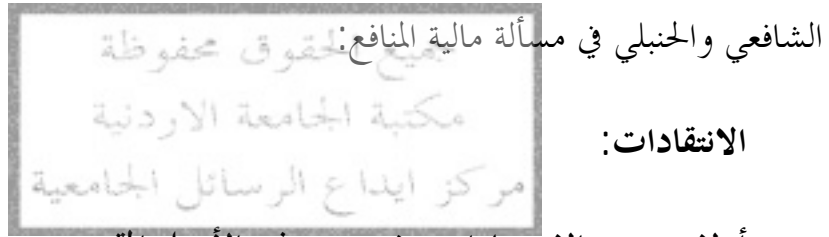 الشافعي والحنبلي في مسألة مالية المنافع:
جميع الحقوق محفوظة
مكتبة الجامعة الاردنية
الانتقادات:
مركز ايداع الرسائل الجامعية